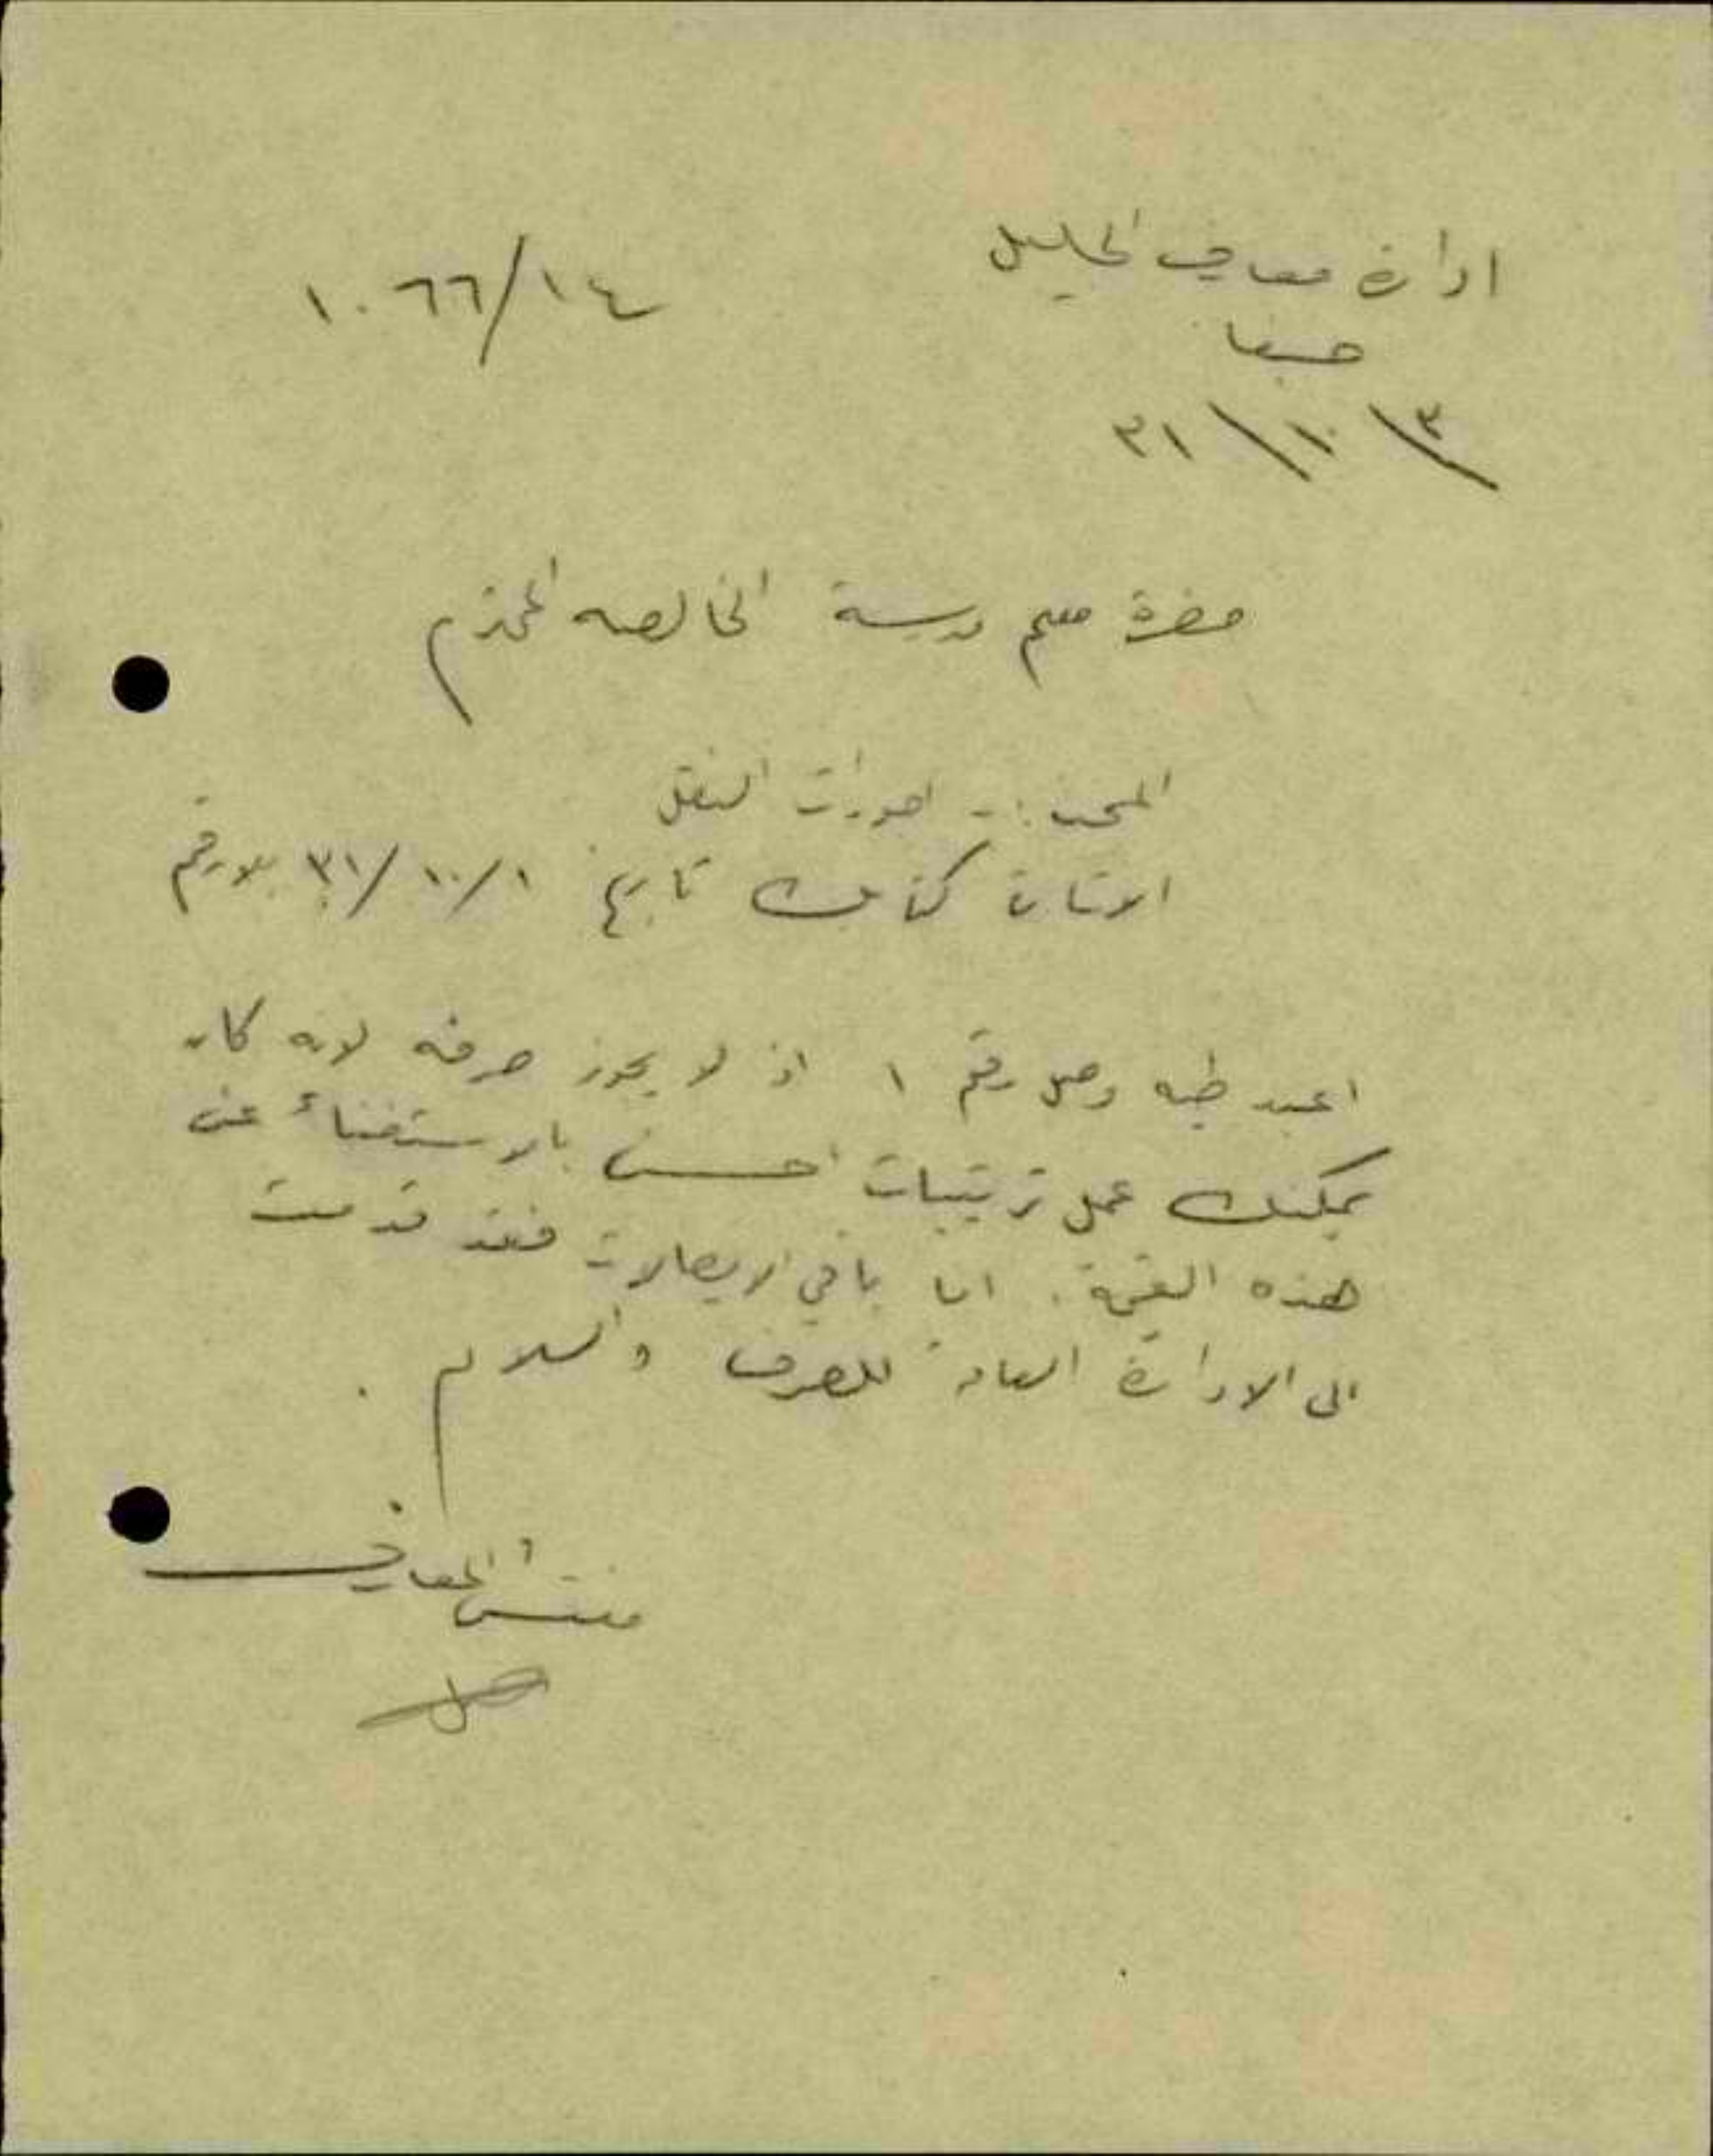 ادارة معارف الجليل
حيفا
١٠٦٦/١٤
٣١/١٠/٣
حضرة معلم مدرسة الخالصه المحترم
المبحث :- اجورات النقل
الاشارة كتابك تاريخ ٣١/١٠/١ بلا رقم
اعيد طيه وصل رقم ١ اذ لا يجوز صرفه لانه كان
يمكنك عمل ترتيبات احسن بالاستغناء عن
هذه القيمة . اما باقي الايصالات فقد قدمت
الى الادارة العامة للصرف والسلام .
مفتش المعارف